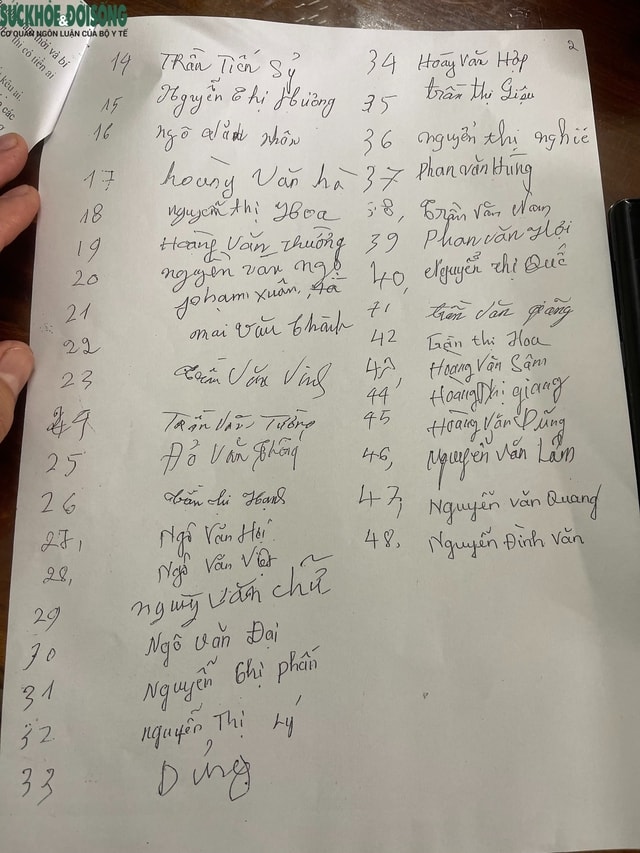 SỨC KHỎE & ĐỜI SỐNG
CƠ QUAN NGÔN LUẬN CỦA BỘ Y TẾ
2
14 Trần Tiến Sỷ
15 Nguyễn Thị Hương
16 ngô nhân
17 hoàng Văn hà
18 nguyễn thị Hoa
19 Hoàng Văn Thưởng
20 nguyễn văn ngọ
21 phạm xuân
22 mai văn thành
23 Trần Văn Vinh
24 Trần Văn Tường
25 Đỗ Văn Thông
26 Trần thị Hạnh
27, Ngô Văn Hội
28, Ngô Văn Việt
29 nguyễn văn chữ
30 Ngô Văn Đại
31 Nguyễn thị phấn
32 nguyễn Thị Lý
33 Dũng
34 Hoàng Văn Hợp
35 trần thị Giệu
36 nguyễn thị nghiê
37 Phan Văn Hùng
38, Trần Văn Nam
39 Phan Văn Hợi
40, Nguyễn Thị Quế
41, trần Văn giảng
42 Trần thị Hoa
43, Hoàng Văn Sâm
44 Hoàng Thị giang
45 Hoàng Văn Dũng
46, Nguyễn Văn Lâm
47, Nguyễn Văn Quang
48, Nguyễn Đình Văn